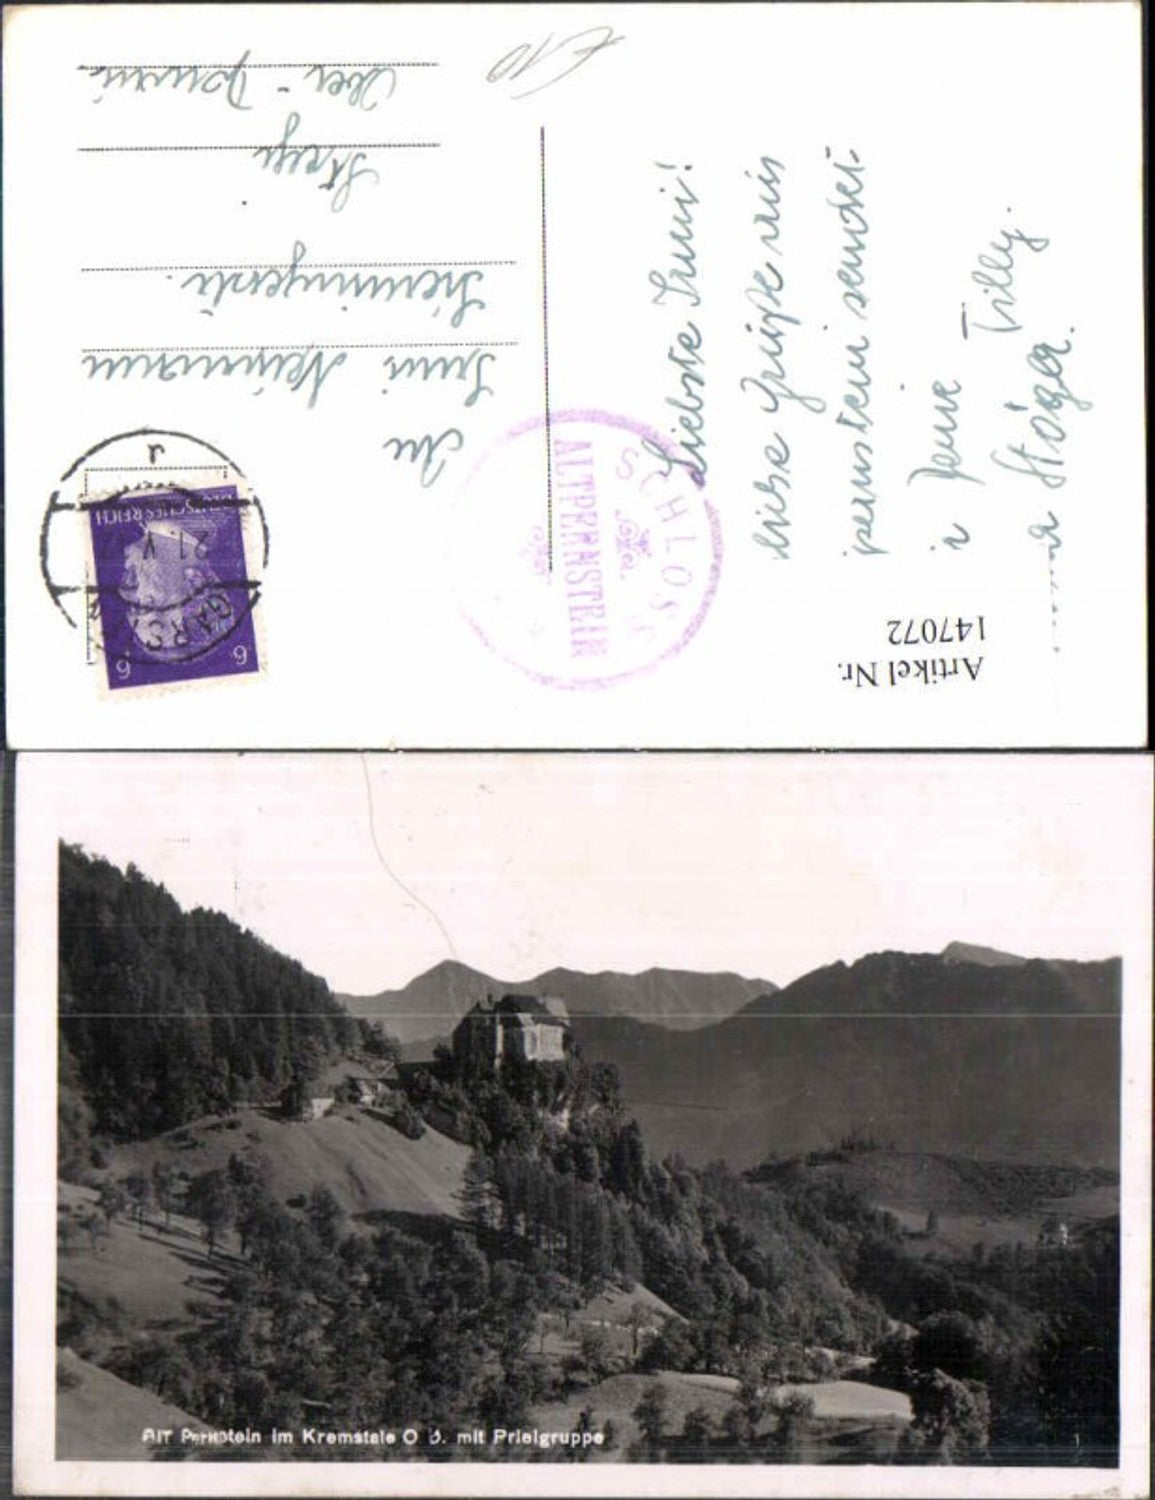 £10
An
Irmi Neumann
Steyr
Ober-Donau
Liebste Irmi!
liebe Grüße aus
pernstein sendet
Tilly.
Stöger.
SCHLOSS
ALTPERNSTEIN
DEUTSCHES REICH
6 6
GARS
21.V
Artikel Nr.
147072
Alt Pernstein im Kremstale O Ö. mit Prielgruppe